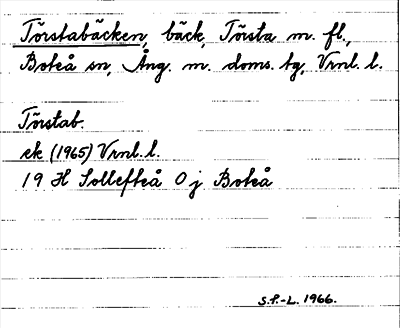 Törstabäcken, bäck, Törsta m. fl.,
Boteå sn, Ång. m. doms. tg, Vrnl. l.
Törstab.
ek (1965) Vrnl. l.
19 H Sollefteå 0 j Boteå
S.P.-L. 1966.